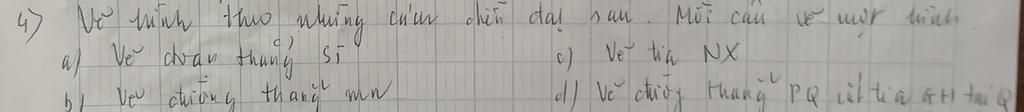 4) Vẽ hình theo những cách diễn đạt sau. Mỗi câu vẽ một hình
a) Vẽ đoạn thẳng SI
c) Vẽ tia NX
b) Vẽ đường thẳng mn
d) Vẽ đường thẳng PQ cắt tia GH tại Q